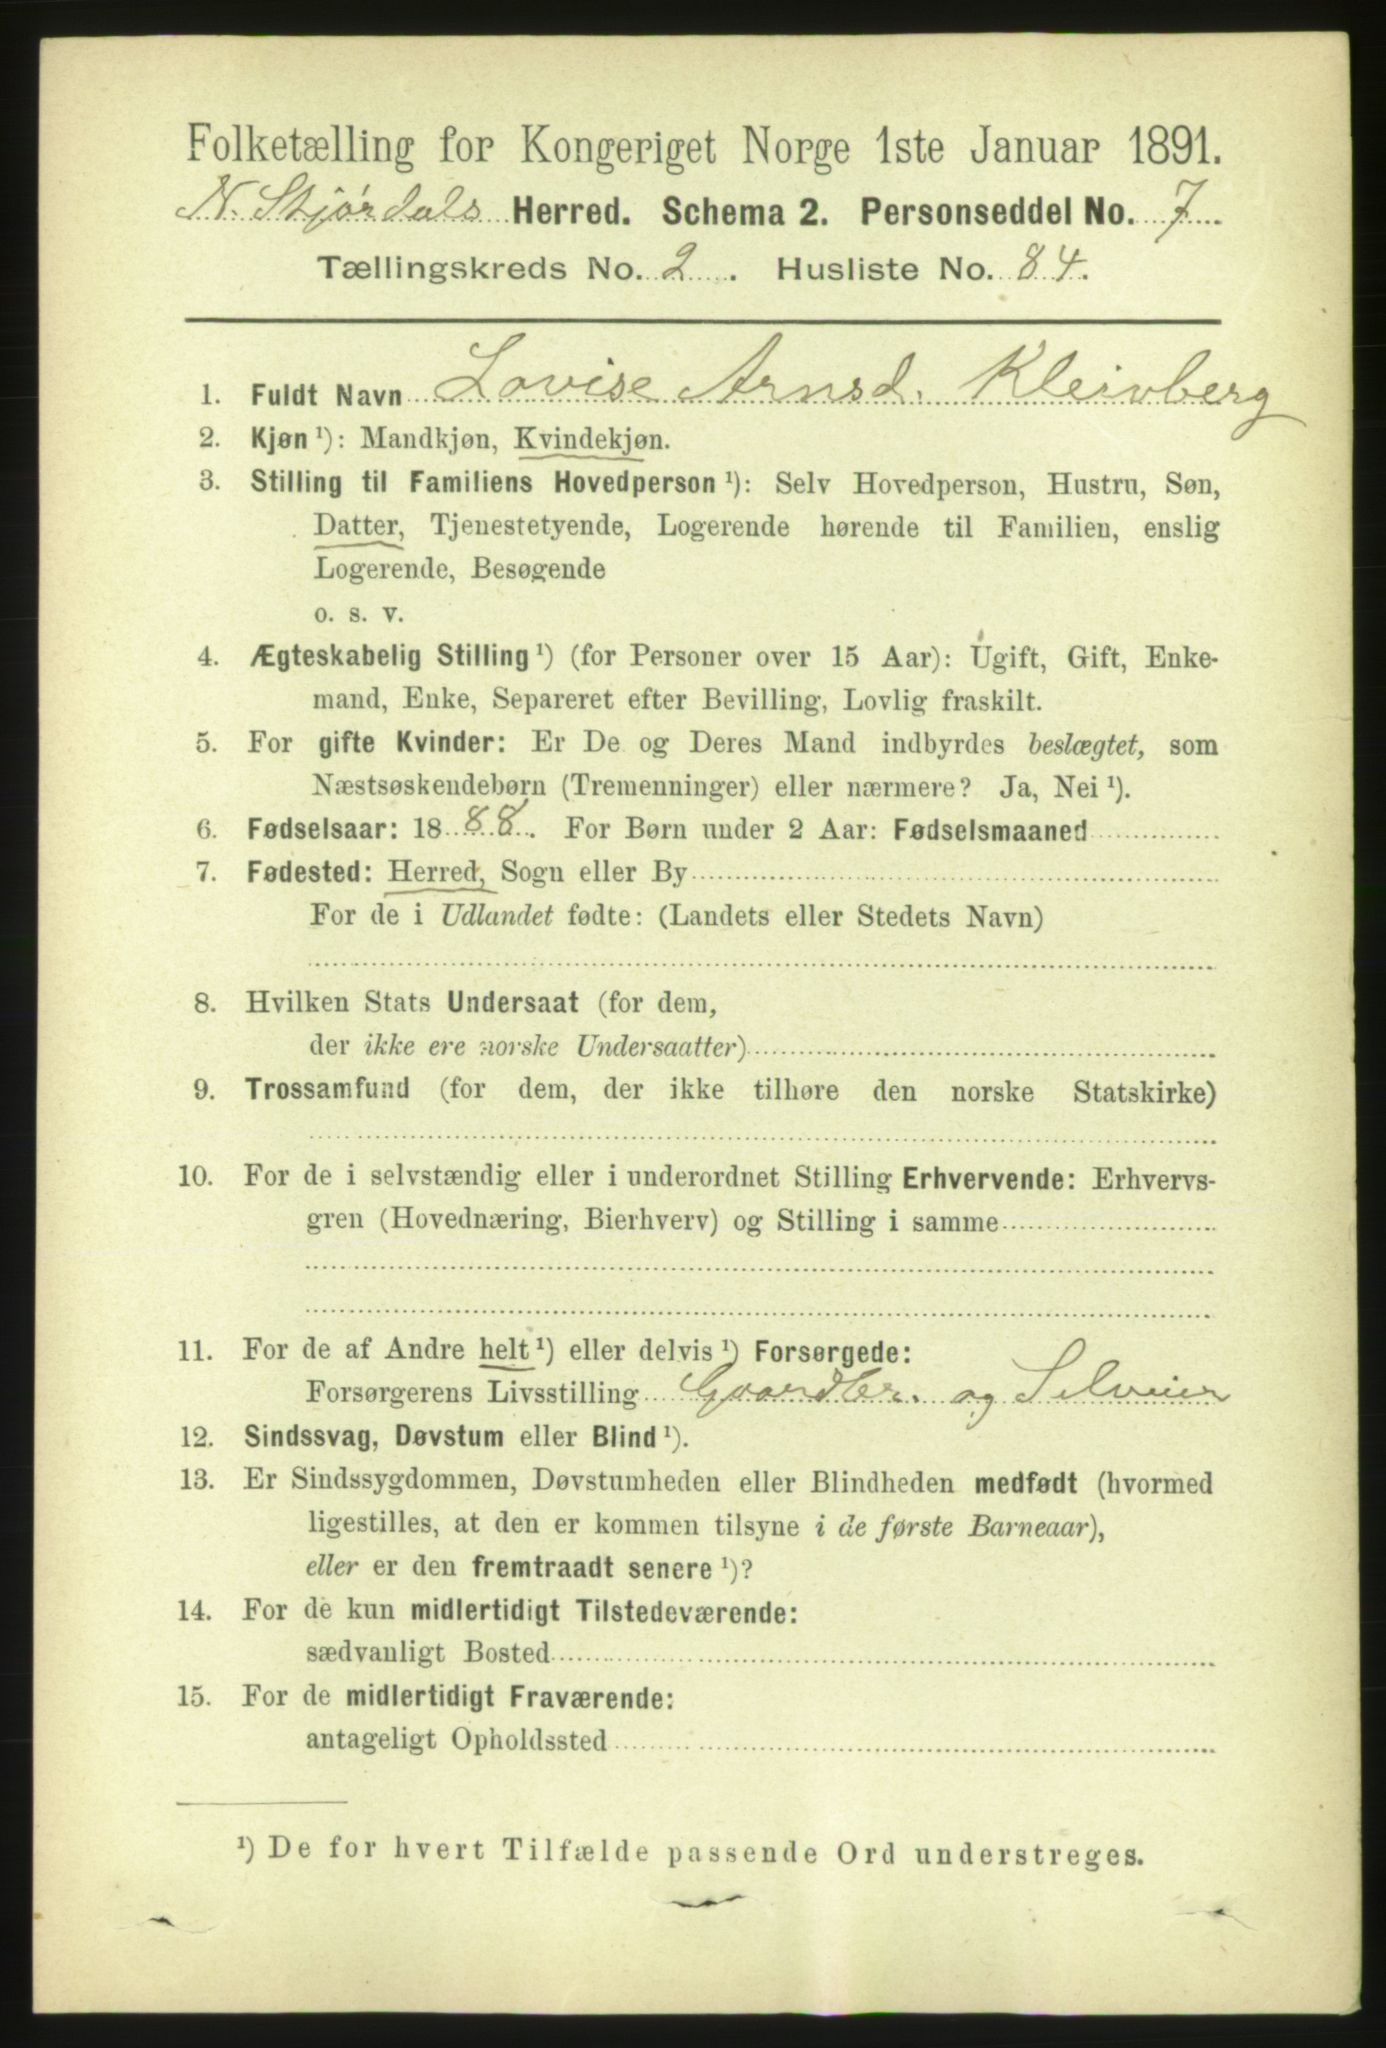 Folketælling for Kongeriget Norge 1ste Januar 1891.
N. Stjørdals Herred. Schema 2. Personseddel No. 7
Tællingskreds No. 2. Husliste No. 84.
1. Fuldt Navn Lovise Arnsd. Kleivberg
2. Kjøn ¹): Mandkjøn, Kvindekjøn.
3. Stilling til Familiens Hovedperson ¹): Selv Hovedperson, Hustru, Søn,
Datter, Tjenestetyende, Logerende hørende til Familien, enslig
Logerende, Besøgende
o. s. v.
4. Ægteskabelig Stilling ¹) (for Personer over 15 Aar): Ugift, Gift, Enke-
mand, Enke, Separeret efter Bevilling, Lovlig fraskilt.
5. For gifte Kvinder: Er De og Deres Mand indbyrdes beslægtet, som
Næstsøskendebørn (Tremenninger) eller nærmere? Ja, Nei ¹).
6. Fødselsaar: 1888. For Børn under 2 Aar: Fødselsmaaned
7. Fødested: Herred, Sogn eller By
For de i Udlandet fødte: (Landets eller Stedets Navn)
8. Hvilken Stats Undersaat (for dem,
der ikke ere norske Undersaatter)
9. Trossamfund (for dem, der ikke tilhøre den norske Statskirke)
10. For de i selvstændig eller i underordnet Stilling Erhvervende: Erhvervs-
gren (Hovednæring, Bierhverv) og Stilling i samme
11. For de af Andre helt ¹) eller delvis ¹) Forsørgede:
Forsørgerens Livsstilling Gaardbr. og Selveier
12. Sindssvag, Døvstum eller Blind ¹).
13. Er Sindssygdommen, Døvstumheden eller Blindheden medfødt (hvormed
ligestilles, at den er kommen tilsyne i de første Barneaar),
eller er den fremtraadt senere ¹)?
14. For de kun midlertidigt Tilstedeværende:
sædvanligt Bosted
15. For de midlertidigt Fraværende:
antageligt Opholdssted
¹) De for hvert Tilfælde passende Ord understreges.